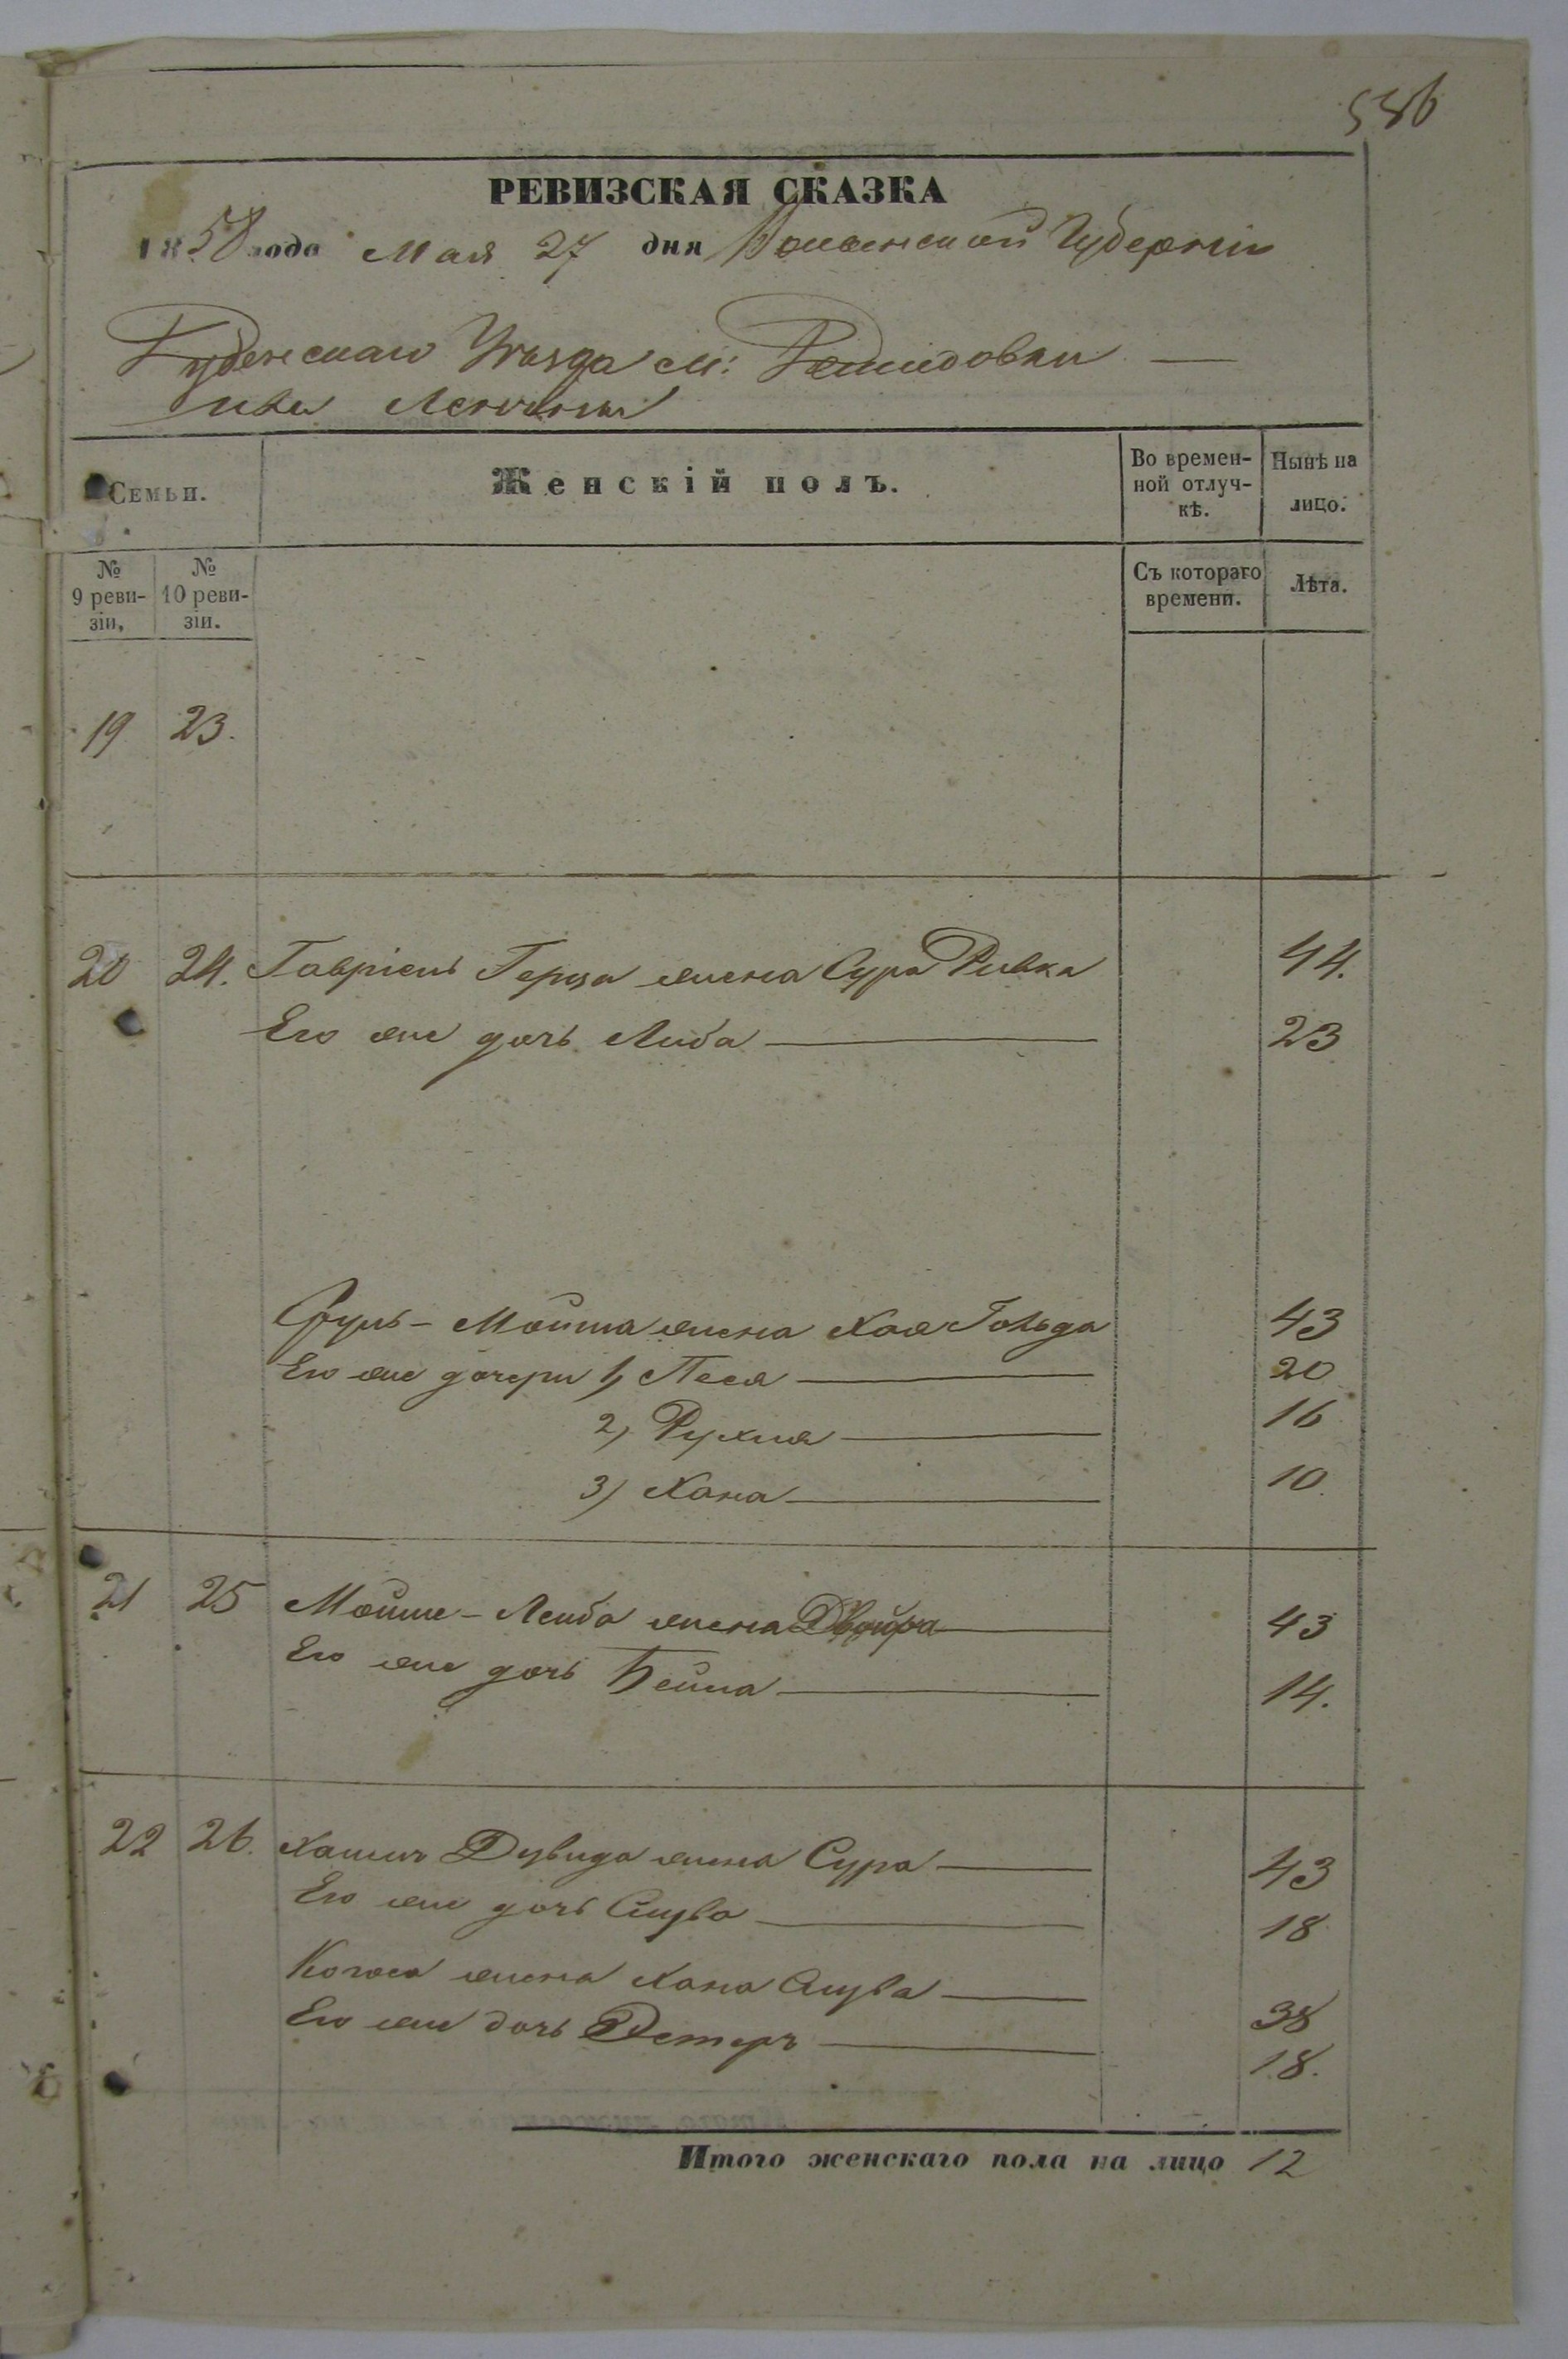 536
РЕВИЗСКАЯ СКАЗКА
1858 года Мая 27 дня Волынской Губерніи
Ровенскаго Уѣзда м:
Семьи.
Женскій полъ.
Во времен-
ной отлуч-
кѣ.
Нынѣ на
лицо.
№
9 реви-
зіи,
№
10 реви-
зіи.
Съ котораго
времени.
Лѣта.
19 23.
20 24. Гавріель Герша жена Сура Ривка 44.
Его же дочь Либа 23
Сруль - Мойша жена Хая Гольда 43
Его же дочери 1, Песя 20
2, Рухля 16
3) Хана 10
21 25 Мойше - Лейба жена Двойра 43
Его же дочь Бейла 14.
22 26. Хаимъ Дувида жена Сура 43
Его же дочь 18
жена Хана 38
Его же дочь Эстеръ 18.
Итого женскаго пола на лицо 12